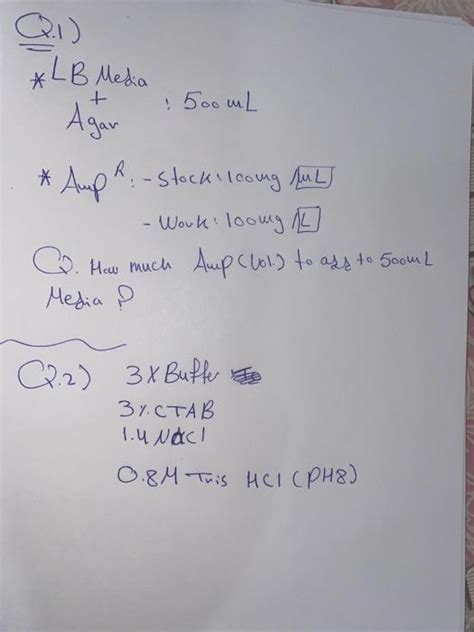 Q.1)
* LB Media
+
Agar : 500 mL
* Amp R : - Stock : 100mg /mL
- Work : 100mg /L
Q. How much Amp (Vol.) to add to 500mL
Media ?
Q.2) 3X Buffer
3% CTAB
1.4 NaCl
0.8M Tris HCl (PH8)